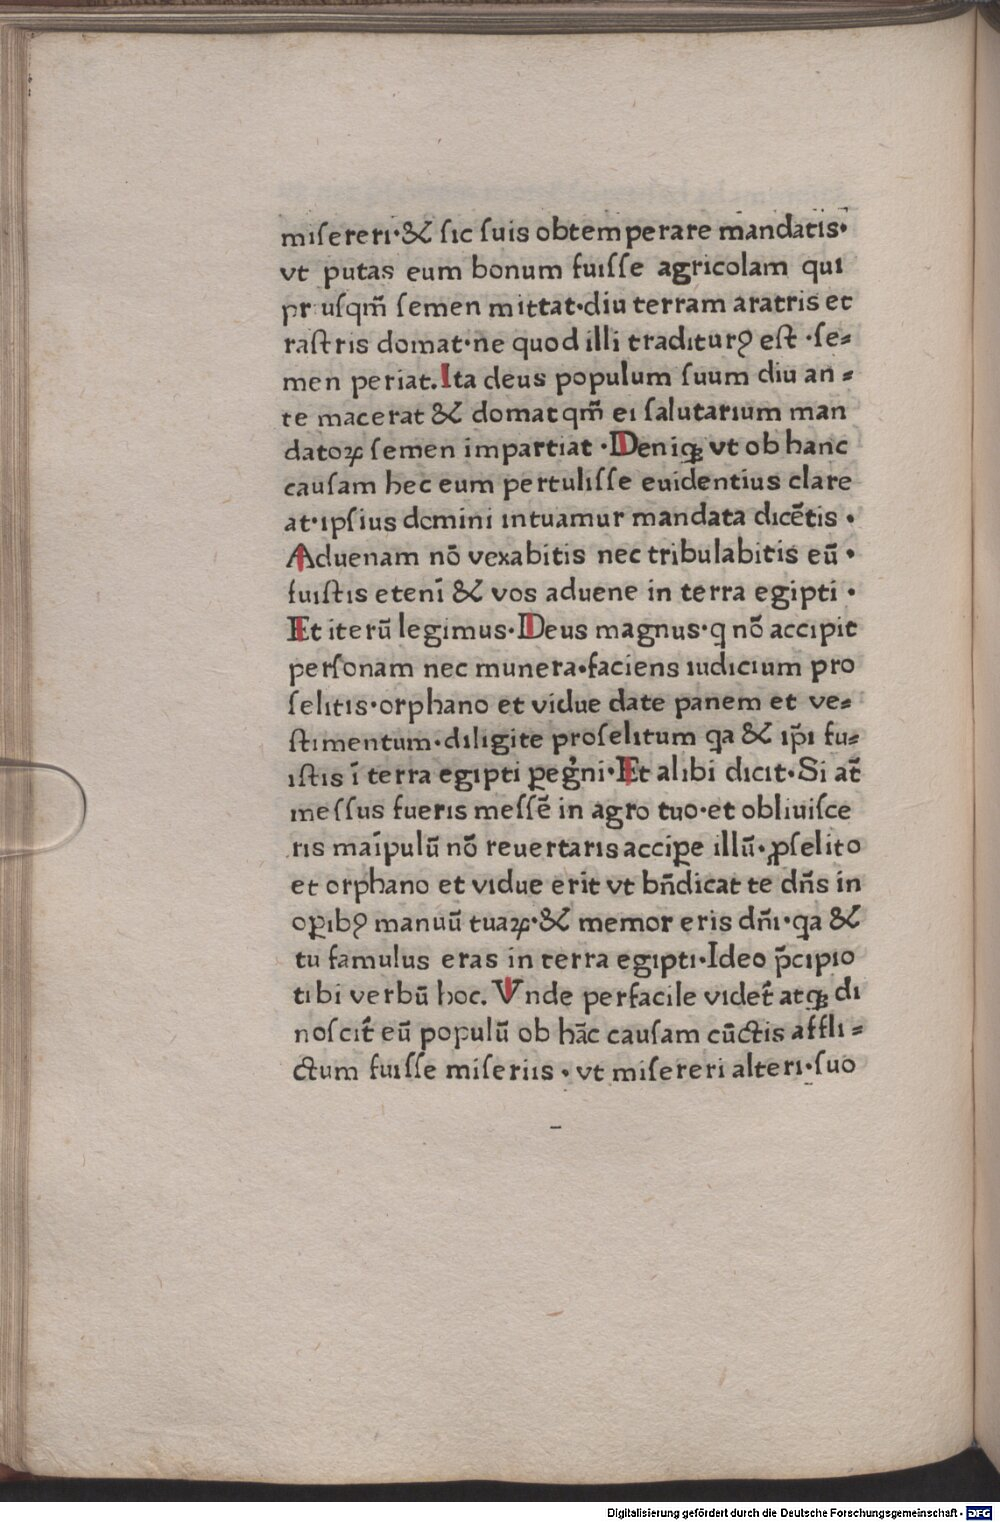 miſereri·& ſic ſuis obtemperare mandatis·
vt putas eum bonum fuiſſe agricolam qui
pr uſqm̃ ſemen mittat·diu terram aratris et
raſtris domat·ne quod illi traditurꝰ eſt ·ſe⸗
men periat.Ita deus populum ſuum diu an⸗
te macerat & domat qm̃ ei ſalutarium man
datoꝝ ſemen impartiat ·Deniqꝫ vt ob hanc
cauſam hec eum pertuliſſe euidentius clare
at·ipſius domini intuamur mandata dicẽtis ·
Aduenam nõ vexabitis nec tribulabitis eũ ·
fuiſtis etenĩ & vos aduene in terra egipti ·
Et iterũ legimus·Deus magnus·q nõ accipit
perſonam nec munera·faciens iudicium pro
ſelitis·orphano et vidue date panem et ve⸗
ſtimentum·diligite proſelitum qa & ip̃i fu⸗
iſtis ĩ terra egipti ꝑeg̉ni·Et alibi dicit·Si at̃
meſſus fueris meſſẽ in agro tuo·et obliuiſce
ris maĩpulũ nõ reuertaris acciꝑe illũ·ꝓſelito
et orphano et vidue erit vt bñdicat te dñs in
oꝑibꝰ manuũ tuaꝝ·& memor eris dñi·qa &
tu famulus eras in terra egipti·Ideo p̃cipio
tibi verbũ hoc. Vnde perfacile videt̃ atqꝫ di
noſcit̃ eũ populũ ob hãc cauſam cũctis affli⸗
ctum fuiſſe miſeriis · vt miſereri alteri·ſuo
Digitalisierung gefördert durch die Deutsche Forschungsgemeinschaft - DFG